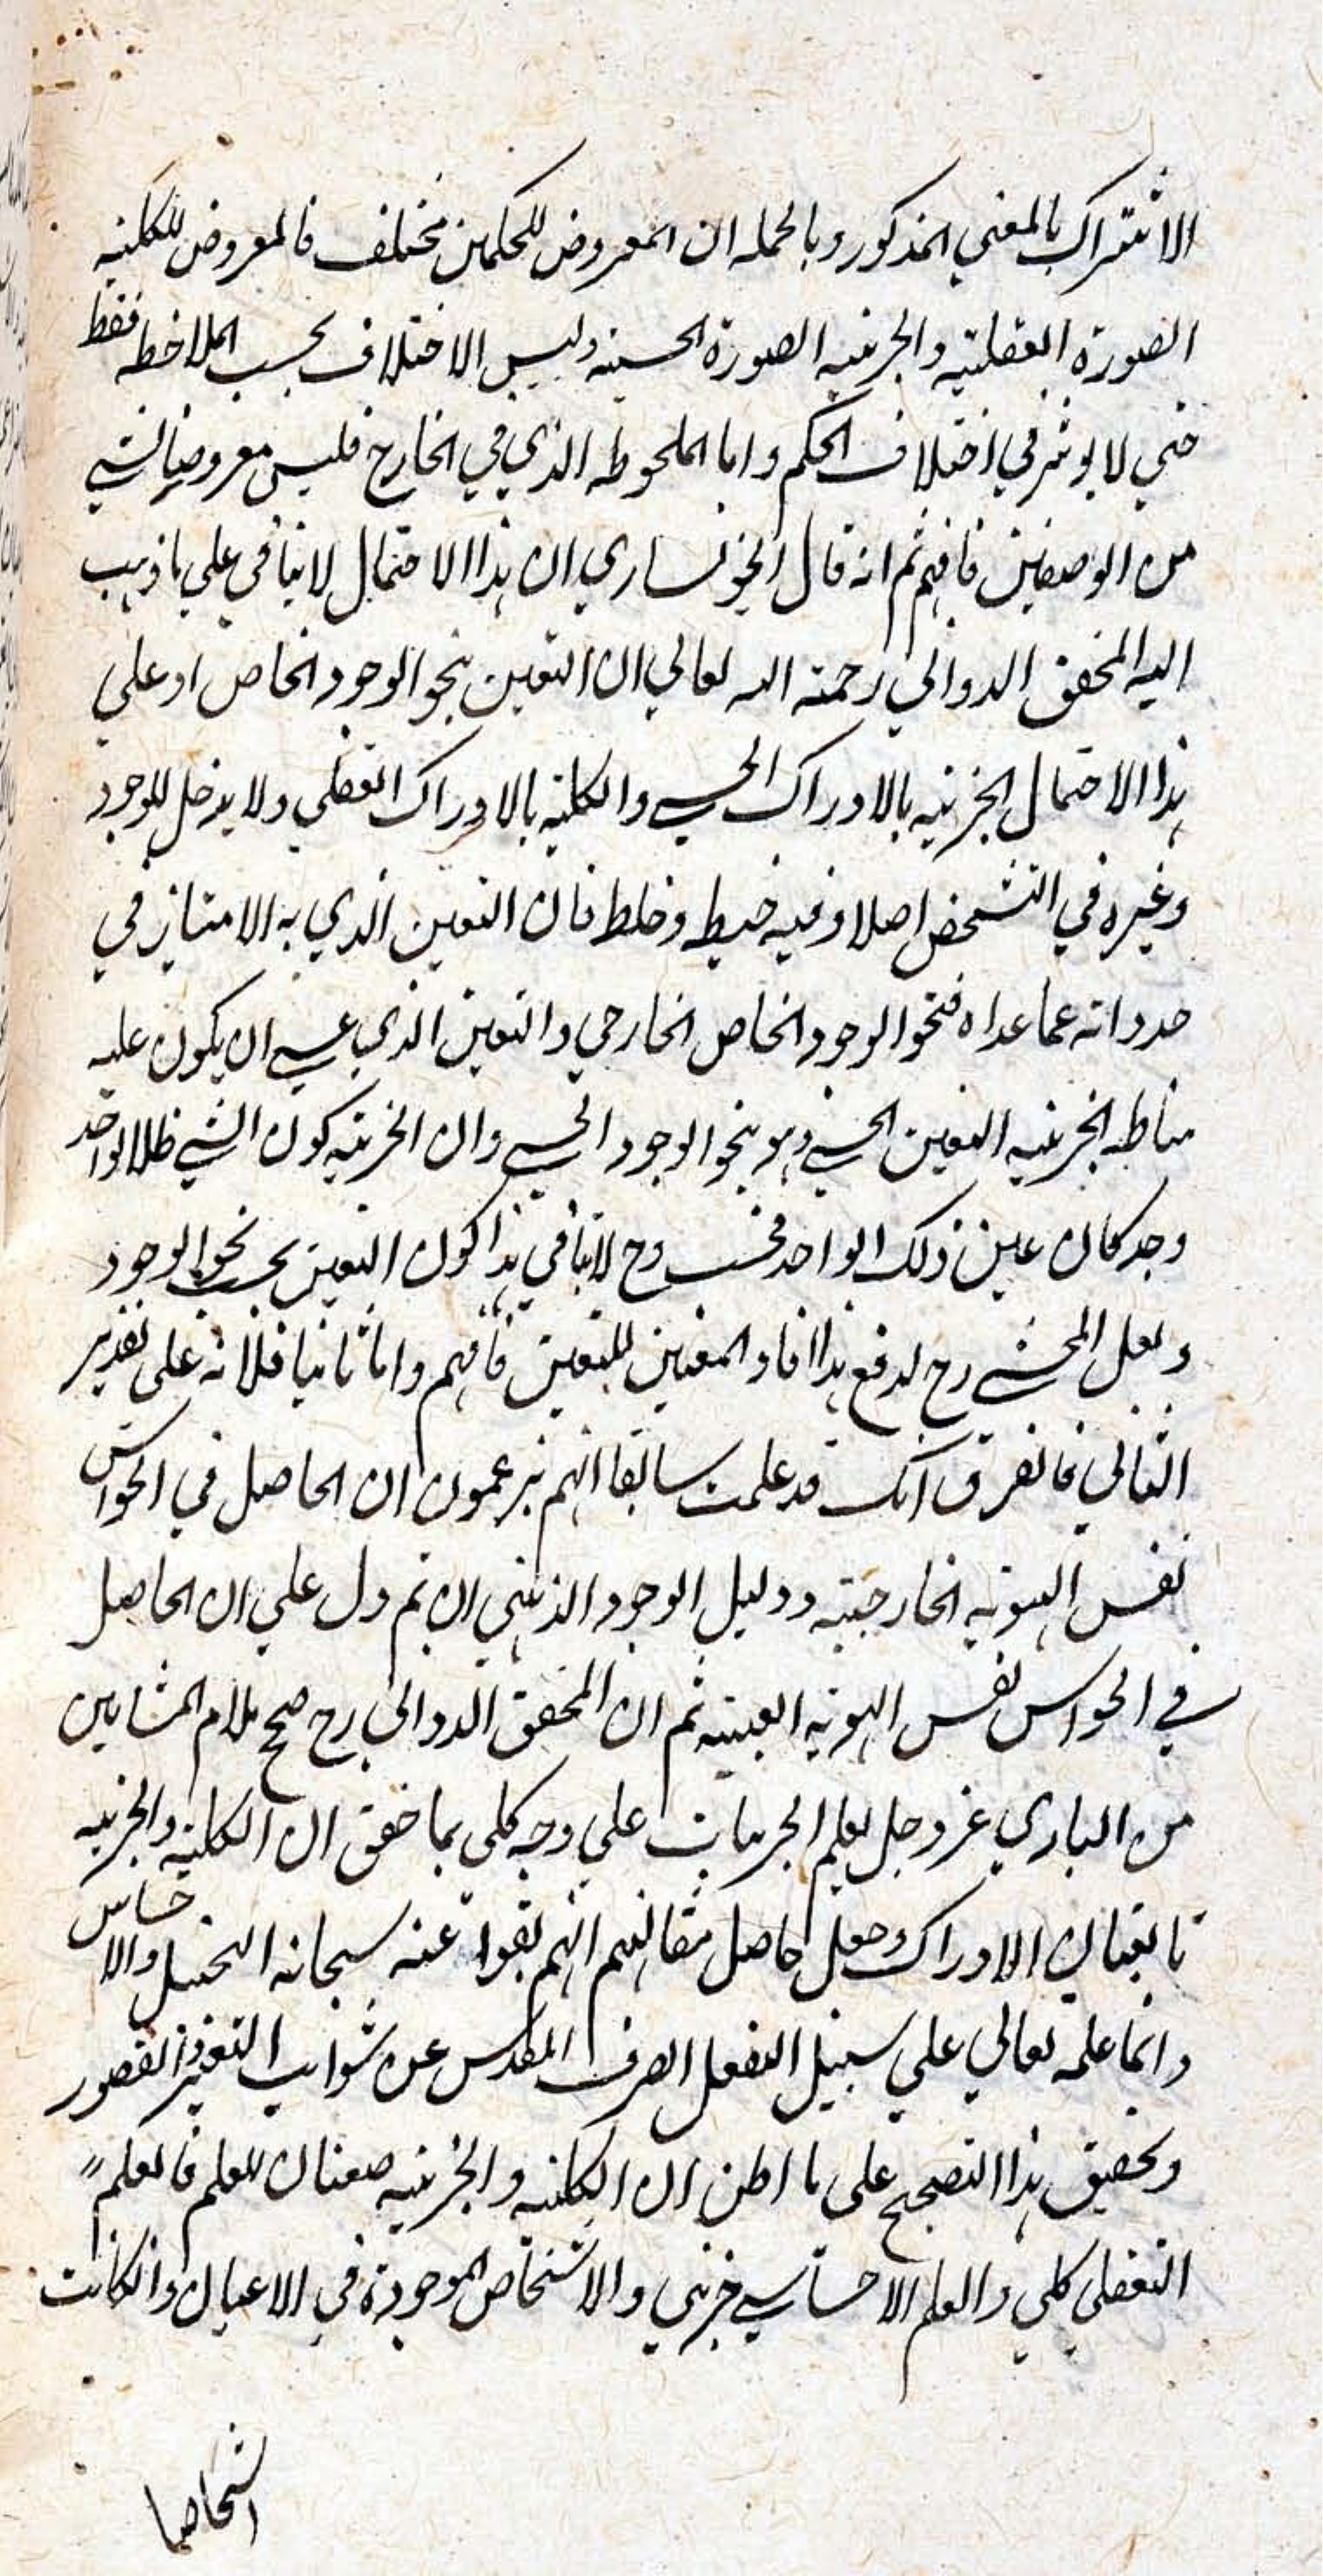 الاشتراك بالمعنى المذكور وبالجمله ان المعروض للحكمين مختلف فالمعروض للكليه
الصورة العقليه والجزئيه الصورة الحسيه وليس الاختلاف بحسب الملاحظه فقط
حتي لا يوثر في اختلاف الحكم واما الملحوظ الذي في الخارج فليس معروضا لشي
من الوصفين فافهم ثم انه قال الخونساري ان هذا الاحتمال لا ينافي علي ما ذهب
اليه المحقق الدواني رحمته الله تعالي ان التعين بنحو الوجود الخاص او علي
هذا الاحتمال الجزئيه بالادراك الحسي والكليه بالادراك العقلي ولا يدخل للوجود
وغيره في التشخص اصلا وفيه خبط وخلط فان التعين الذي به الامتياز في
حد ذاته عما عداه فنحو الوجود الخاص الخارجي والتعين الذي عسي ان يكون عليه
مناط الجزئيه التعين الحسي وهو بنحو الوجود الحسي وان الجزئيه كون الشي ظلا لواحد
وجد كان عين ذلك الواحد فحسب وح لا ينافي هذا كون التعين بحسب نحو الوجود
ولعل المحشي رح لدفع هذا افاد المعنين للتعين فافهم واما ثانيا فلانه على تقدير
الثاني فالفرق انك قد علمت سابقا انهم يزعمون ان الحاصل في الحواس
نفس الهويه الخارجيه ودليل الوجود الذهني ان تم دل علي ان الحاصل
في الحواس نفس الهويه العينيه ثم ان المحقق الدواني رح صحح كلام المشايين
من الباري عز وجل يعلم الجزييات علي وجه كلي بما حقق ان الكليه والجزييه
تابعتان الادراك وجعل حاصل مقالتهم انهم نفوا عنه سبحانه التخيل والاحساس
وانما علمه تعالي علي سبيل التعقل الصرف المقدس عن شوايب التغير والقصور
وتحقيق هذا التصحيح على ما اظن ان الكليه والجزئيه صفتان للعلم فالعلم
التعقلي كلي والعلم الاحساسي جزئي والاشخاص الموجودة في الاعيان وان كانت
اشخاصا